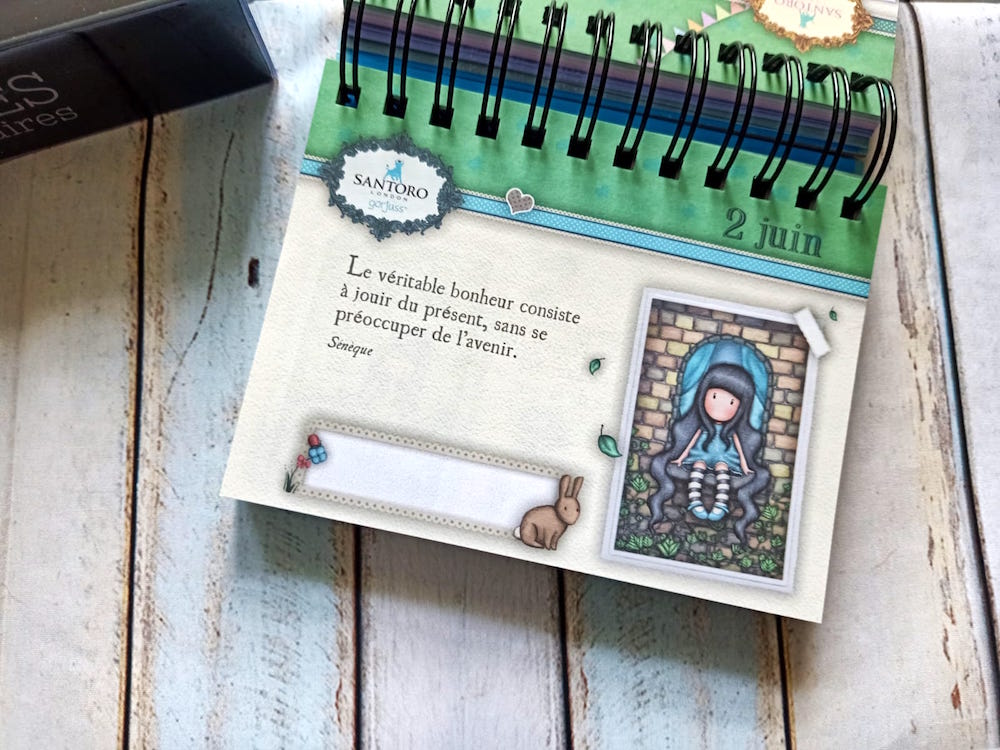 SANTORO
ES
aires
SANTORO
LONDON
gorjuss™
2 juin
Le véritable bonheur consiste
à jouir du présent, sans se
préoccuper de l'avenir.
Sénèque